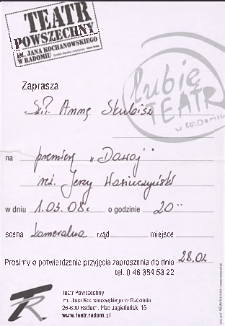 TEATR
POWSZECHNY
IM. JANA KOCHANOWSKIEGO
W RADOMIU
lubię
TEATR
w Radomiu
Zaprasza
Sz.P. Annę Skubisz
na premierę „Daway”
reż. Jerzy
w dniu 1.03.08r. o godzinie 20⁰⁰
scena kameralna rząd miejsce
Prosimy o potwierdzenie przyjęcia zaproszenia do dnia 28.02
tel. 0 48 384 53 22
Teatr Powszechny
im. Jana Kochanowskiego w Radomiu
26-600 Radom, Plac Jagielloński 15
www.teatr.radom.pl